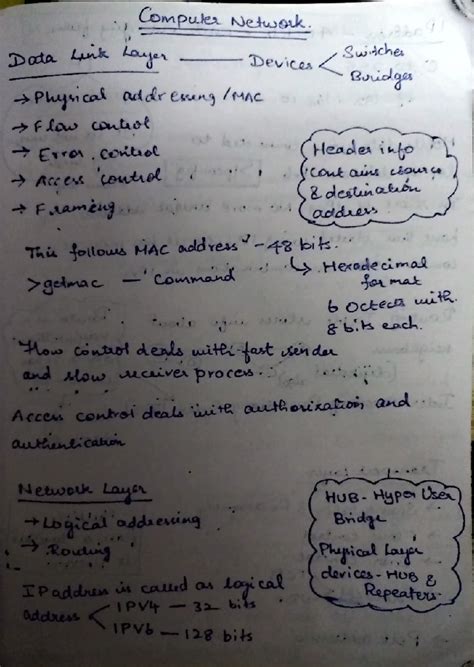 Computer Network.
Data Link Layer — Devices < Switches
Bridges
→ Physical addressing / MAC
→ Flow control
→ Error control
→ Access control
→ Framing
Header info
contains source
& destination
address
This follows MAC address - 48 bits.
↳ Hexadecimal
format
6 Octects with
8 bits each.
>getmac — Command
Flow control deals with fast sender
and slow receiver process.
Access control deals with authorization and
authentication
Network Layer
→ Logical addressing
→ Routing
HUB - Hyper User
Bridge
Physical Layer
devices - HUB &
Repeaters.
IP address is called as logical
address < IPV4 — 32 bits
IPV6 — 128 bits